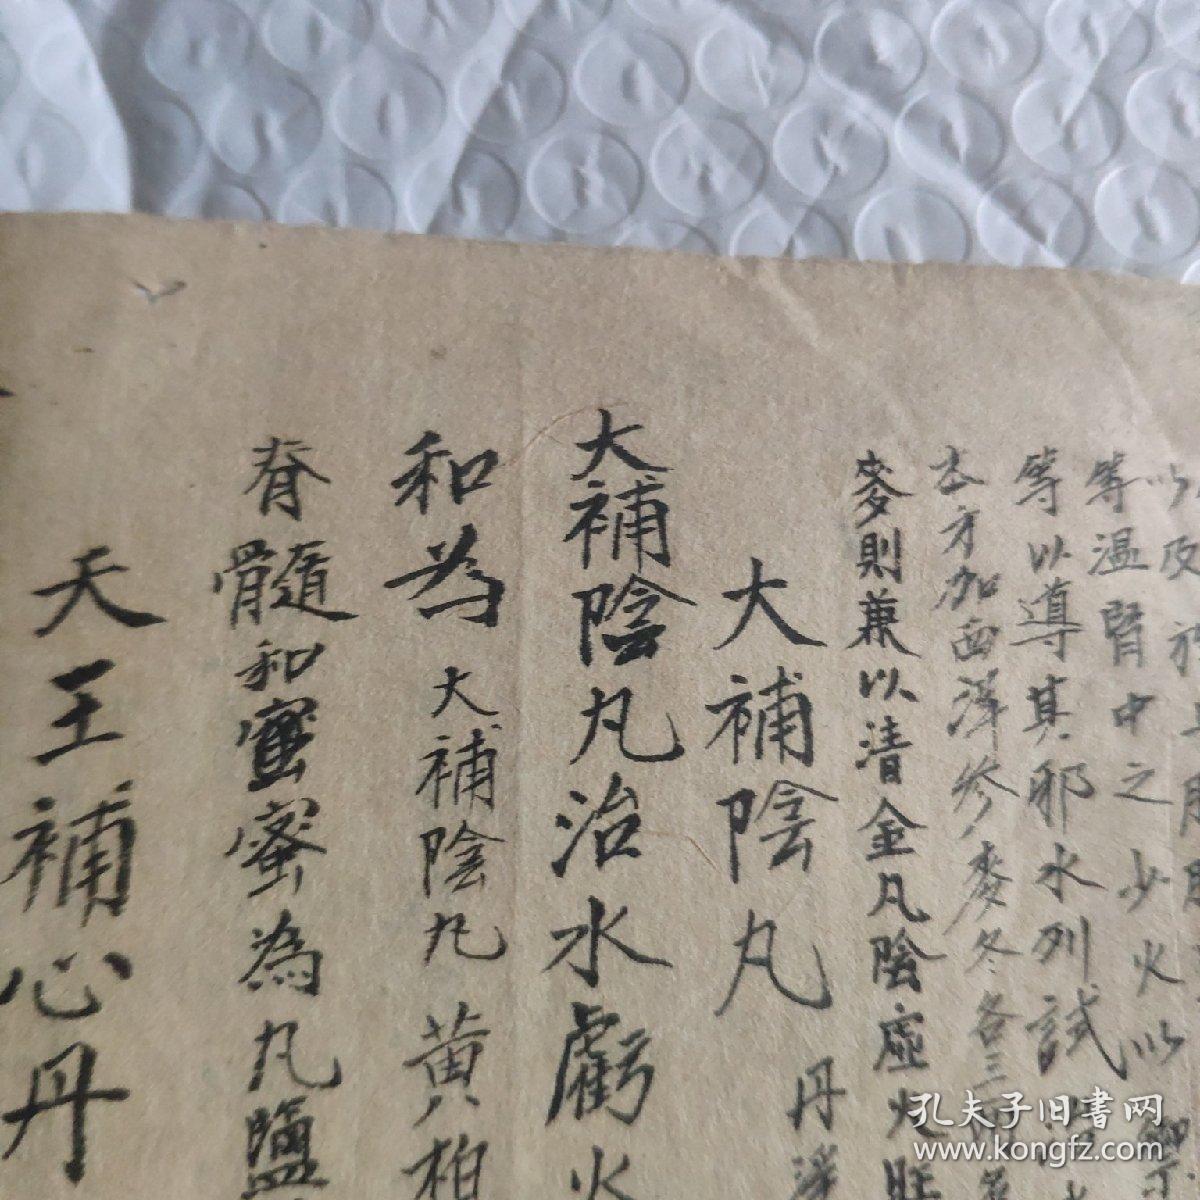 以及
等温腎中之少火以
等以導其邪水列試
本方加西洋參麥冬各三
麥則兼以清金凡陰虛火旺
大補陰丸 丹溪
大補陰丸治水虧火
和為 大補陰丸 黄柏
脊髓和蜜蜜為丸鹽
天王補心丹
孔夫子旧書网
www.kongfz.com